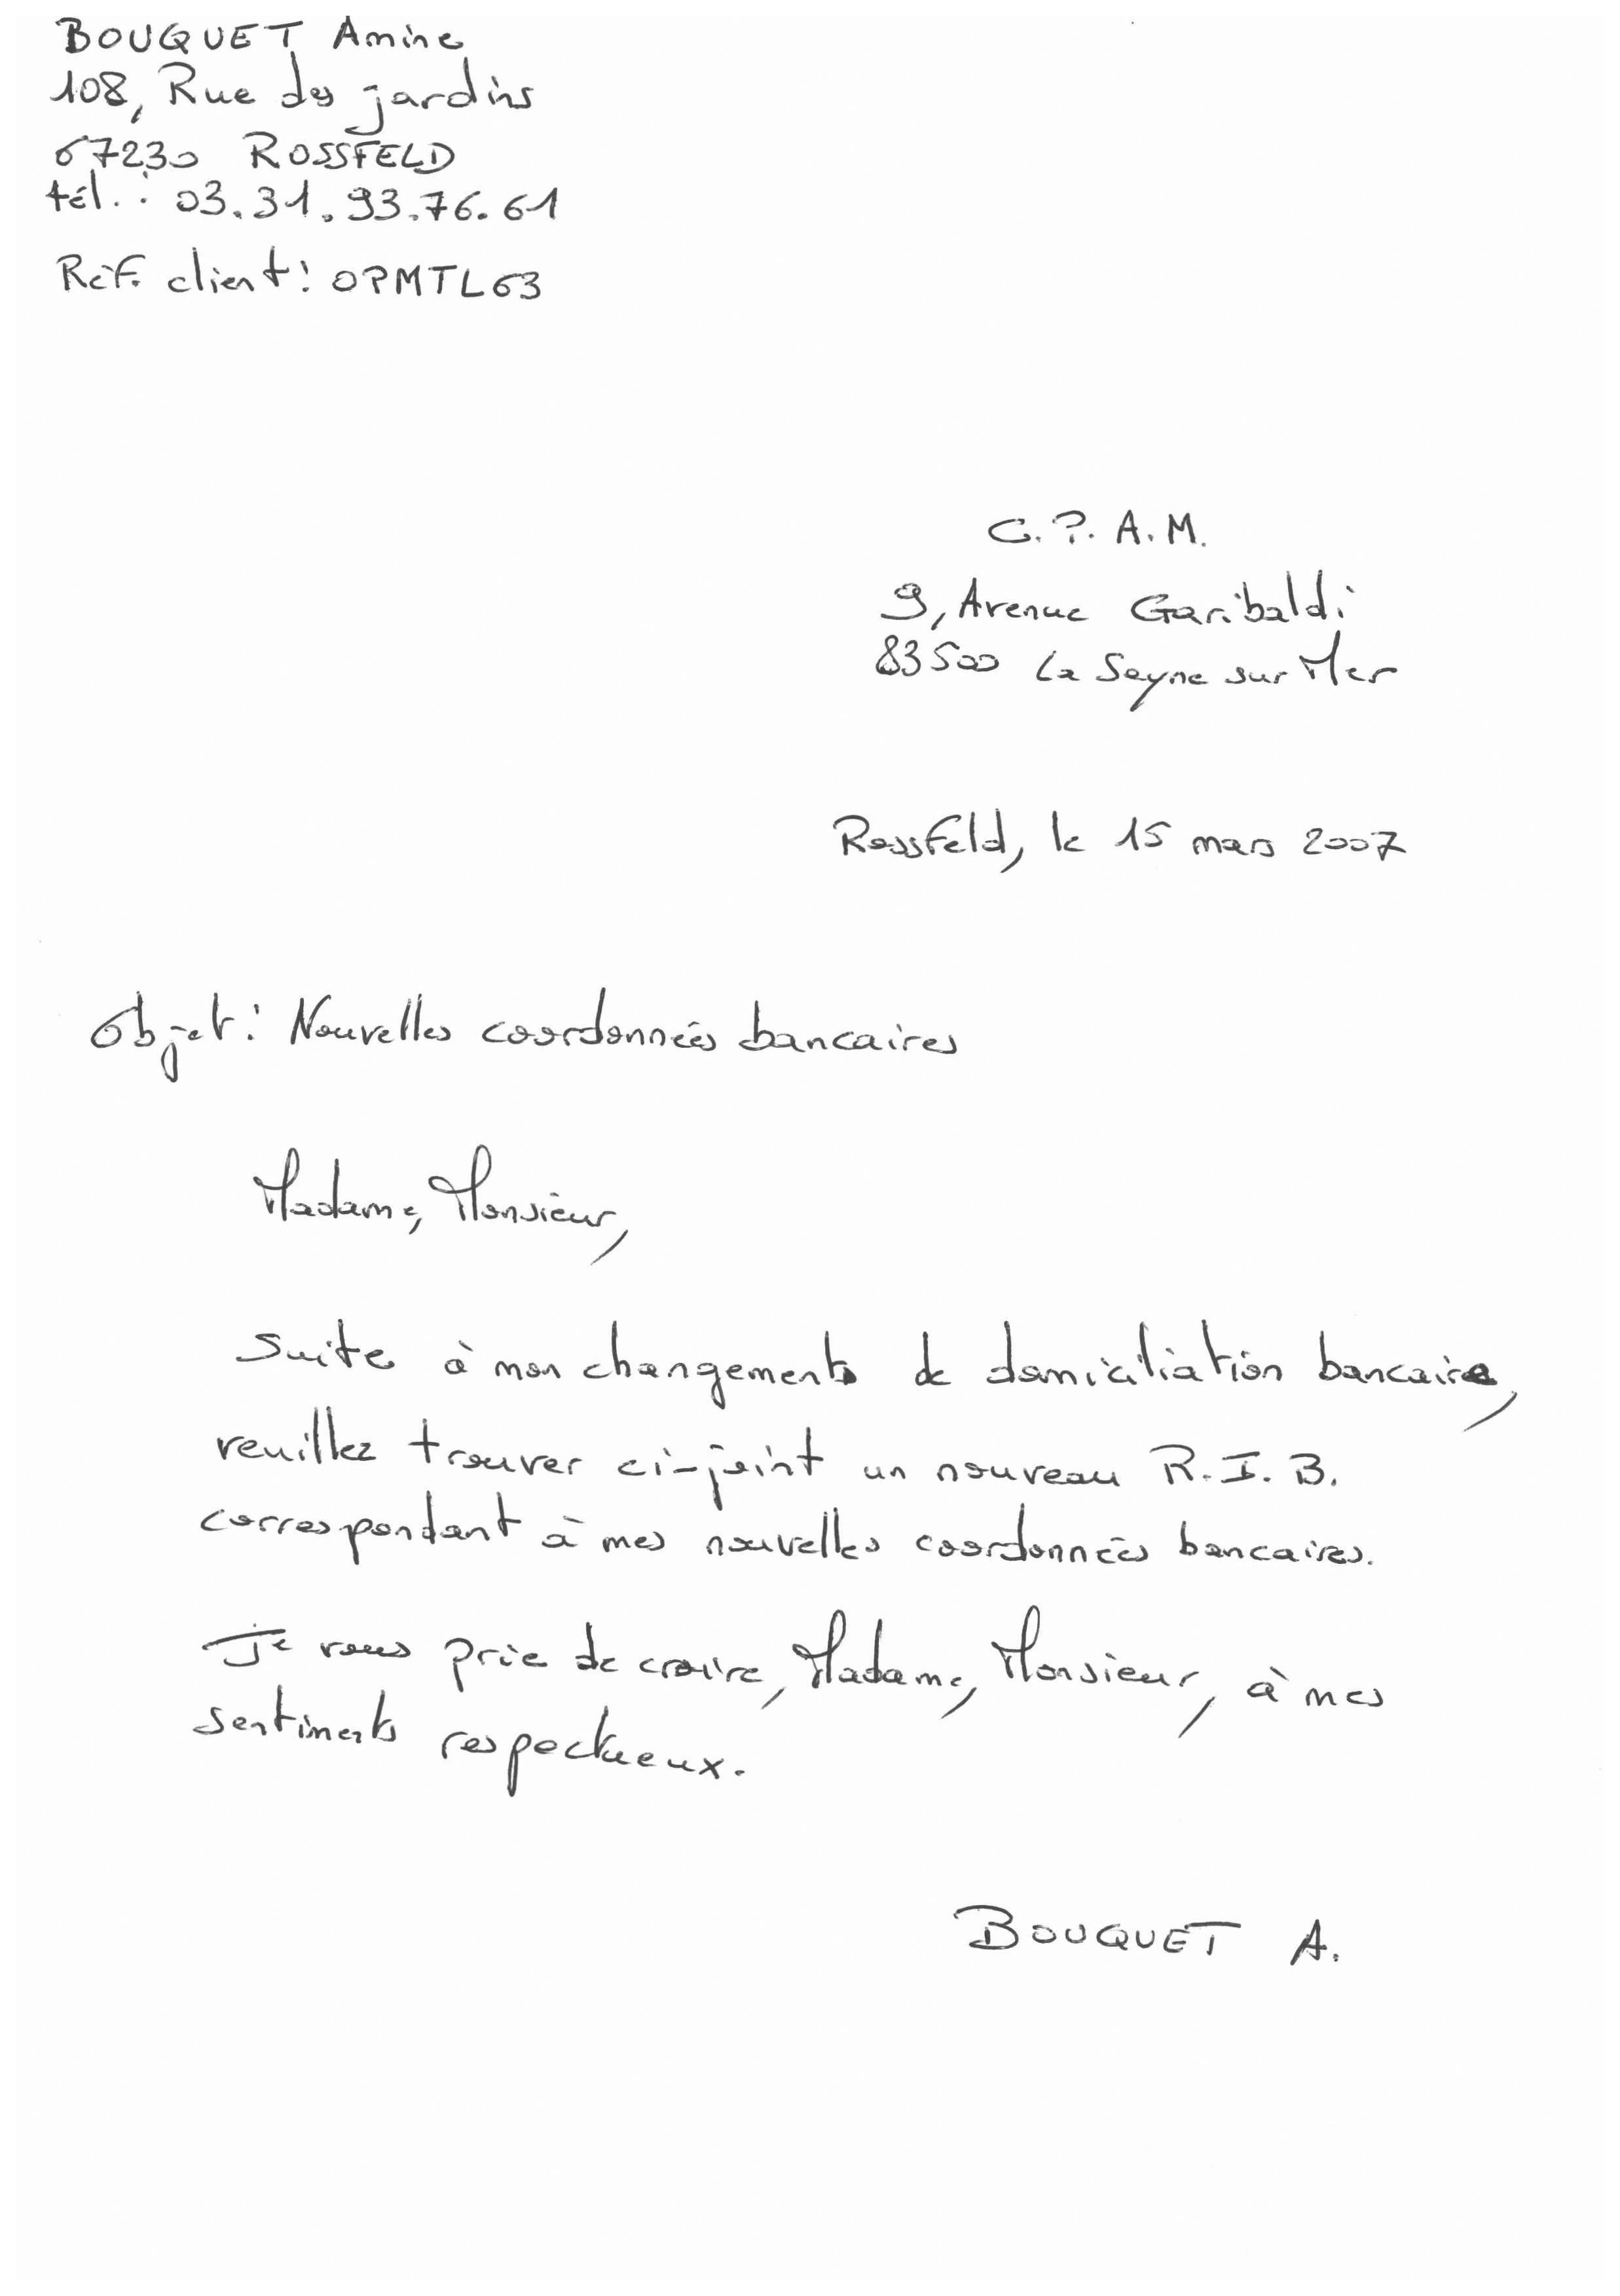 BOUQUET Amine
108, Rue des jardins
67230 ROSSFELD
tél. : 03.31.93.76.61
Réf. client : OPMTL63
C.P.A.M.
9, Avenue Garibaldi
83500 La Seyne sur Mer
Rossfeld, le 15 mars 2007
Objet : Nouvelles coordonnées bancaires
Madame, Monsieur,
Suite à mon changements de domiciliation bancaire,
veuillez trouver ci-joint un nouveau R.I.B.
correspondant à mes nouvelles coordonnées bancaires.
Je vous prie de croire, Madame, Monsieur, à mes
sentiments respectueux.
BOUQUET A.